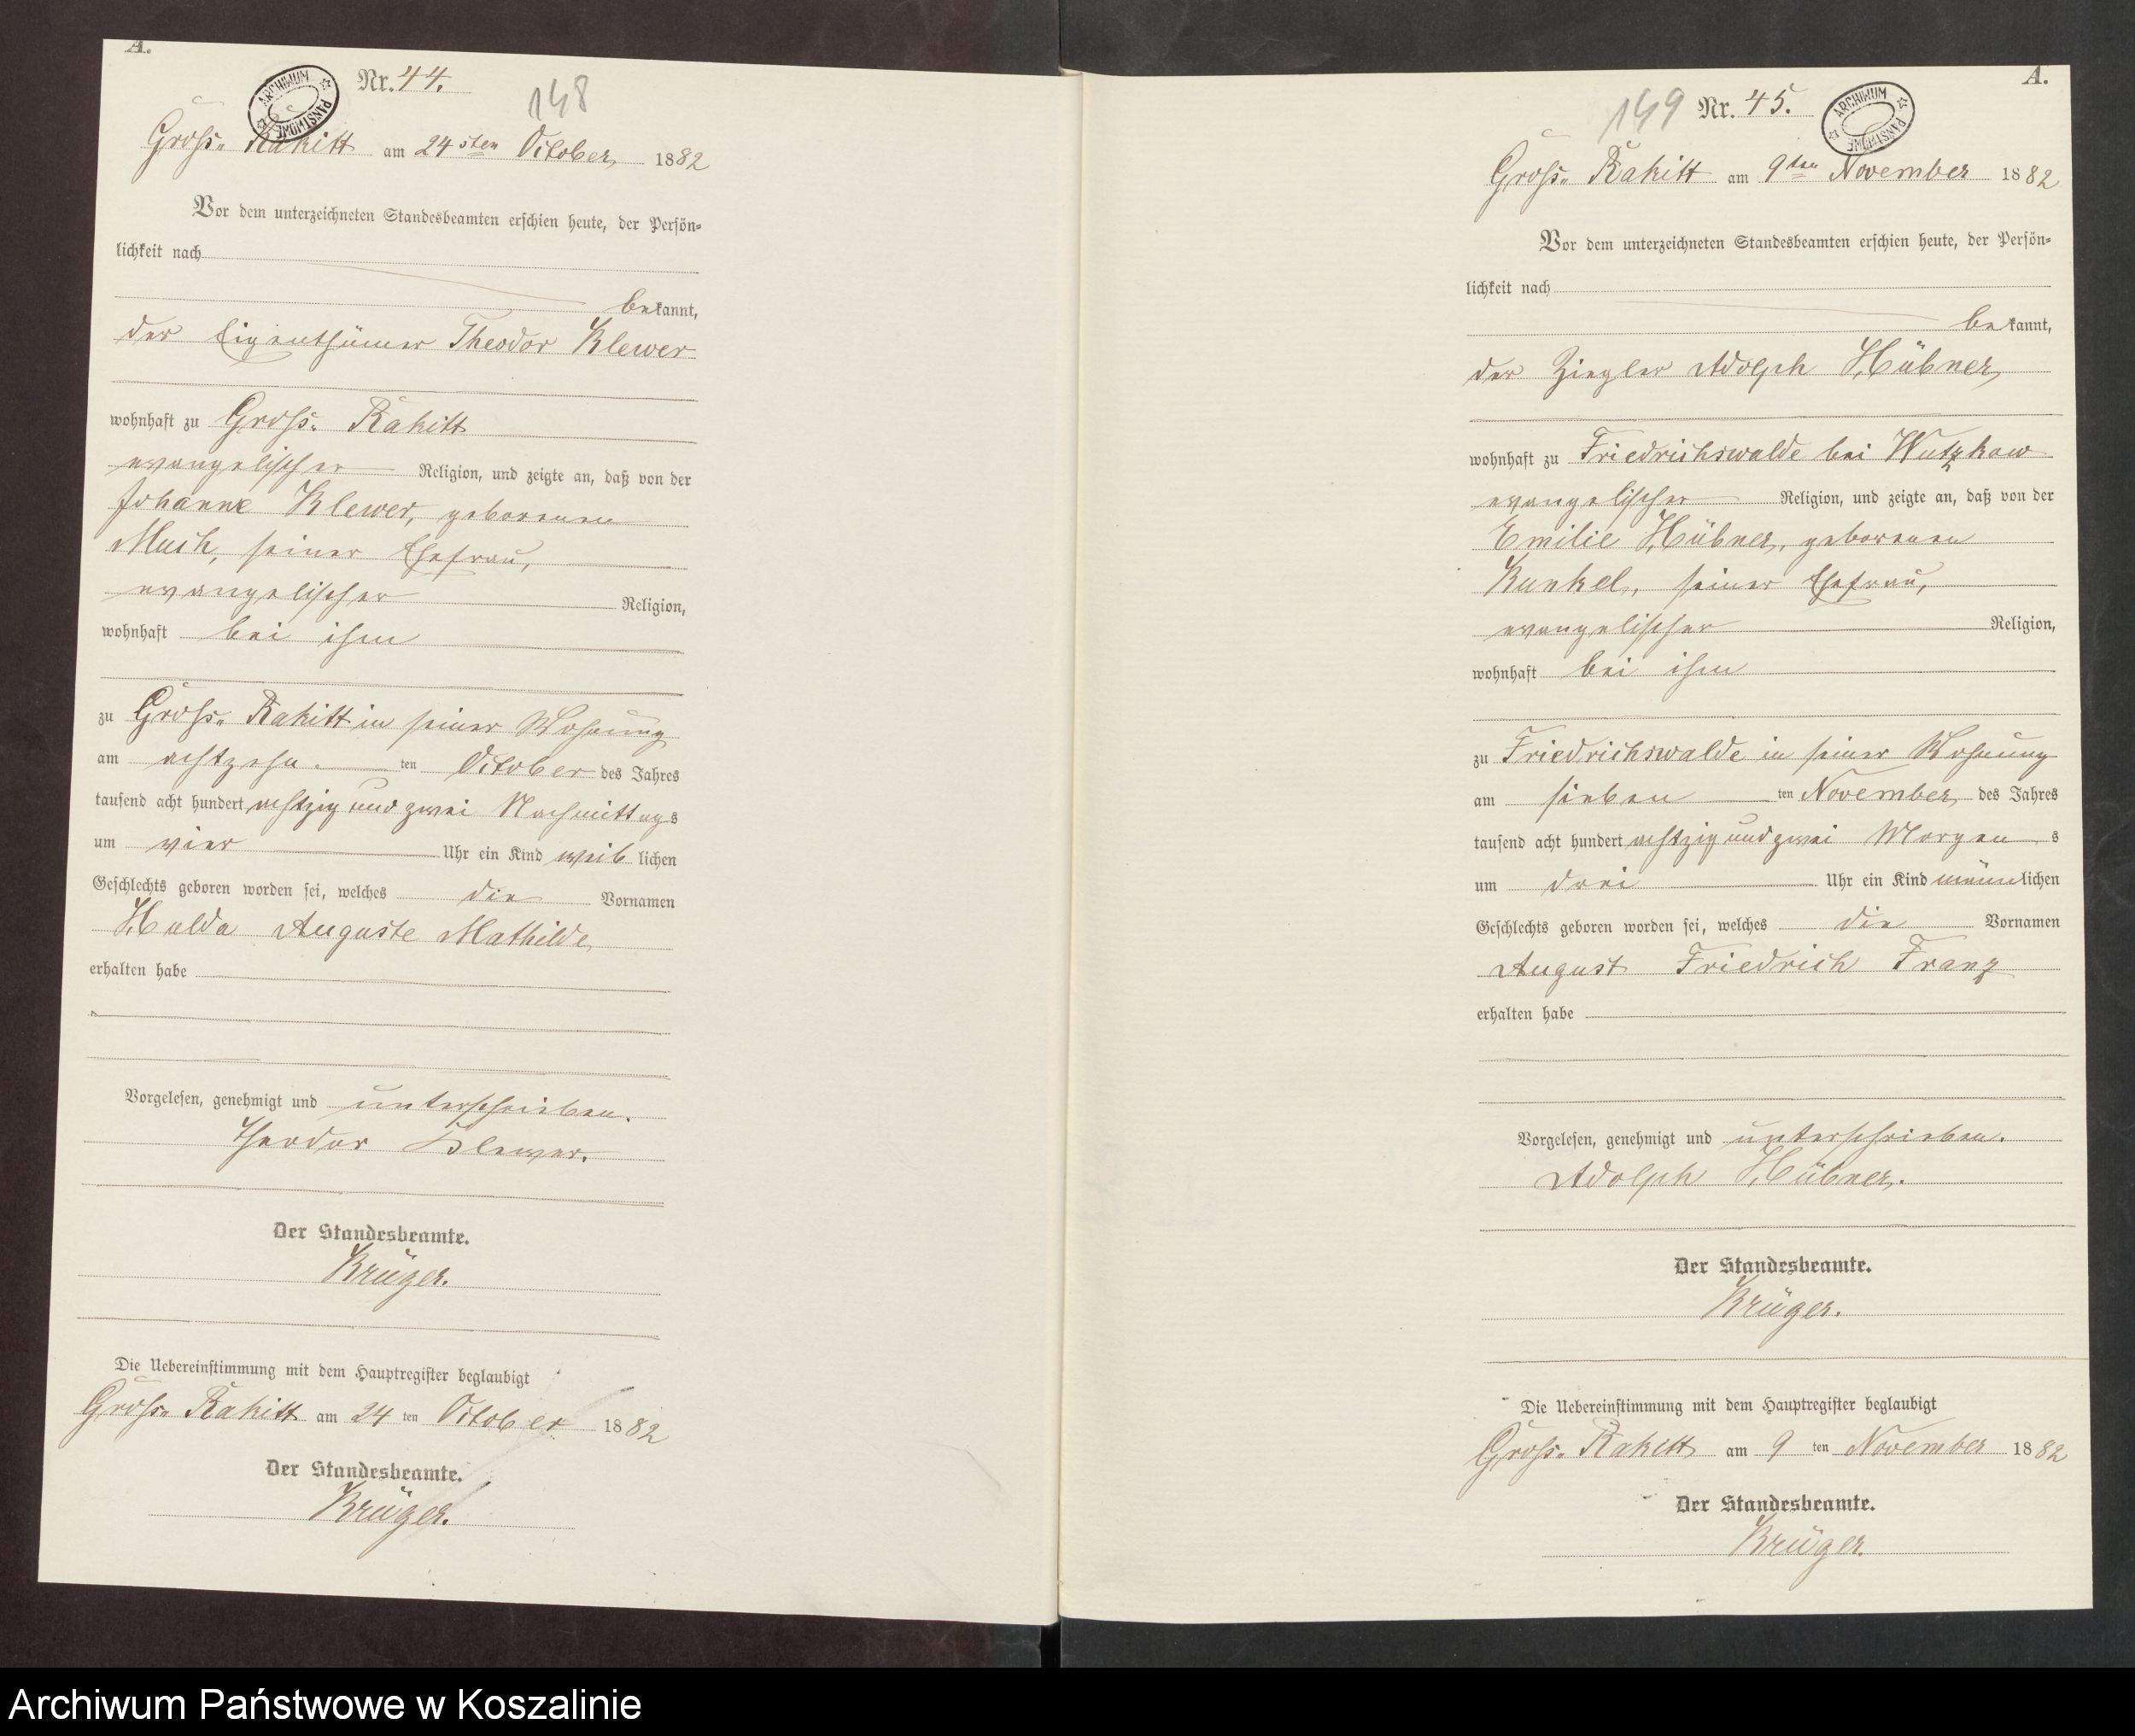 A.
ARCHIWUM PAŃSTWOWE
Nr. 44.
148
Gross- Rakitt am 24sten October 1882
Vor dem unterzeichneten Standesbeamten erschien heute, der Persön-
lichkeit nach
bekannt,
der Eigenthümer Theodor Klewer
wohnhaft zu Gross- Rakitt
evangelischer Religion, und zeigte an, daß von der
Johanne Klewer, geborenen
Much, seiner Ehefrau,
evangelischer Religion,
wohnhaft bei ihm
zu Gross- Rakitt in seiner Wohnung
am achtzehn ten October des Jahres
tausend acht hundert achtzig und zwei Nachmittags
um vier Uhr ein Kind weiblichen
Geschlechts geboren worden sei, welches die Vornamen
Hulda Auguste Mathilde
erhalten habe
Vorgelesen, genehmigt und unterschrieben.
Theodor Klewer.
Der Standesbeamte.
Krüger.
Die Uebereinstimmung mit dem Hauptregister beglaubigt
Gross- Rakitt am 24 ten October 1882
Der Standesbeamte.
Krüger.
A.
149
Nr. 45.
ARCHIWUM PAŃSTWOWE
Gross- Rakitt am 9ten November 1882
Vor dem unterzeichneten Standesbeamten erschien heute, der Persön-
lichkeit nach
bekannt,
der Ziegler Adolph Hübner
wohnhaft zu Friedrichswalde bei Wutzkow
evangelischer Religion, und zeigte an, daß von der
Emilie Hübner, geborenen
Kunkel, seiner Ehefrau,
evangelischer Religion,
wohnhaft bei ihm
zu Friedrichswalde in seiner Wohnung
am sieben ten November des Jahres
tausend acht hundert achtzig und zwei Morgens
um drei Uhr ein Kind männlichen
Geschlechts geboren worden sei, welches die Vornamen
August Friedrich Franz
erhalten habe
Vorgelesen, genehmigt und unterschrieben.
Adolph Hübner.
Der Standesbeamte.
Krüger.
Die Uebereinstimmung mit dem Hauptregister beglaubigt
Gross- Rakitt am 9 ten November 1882
Der Standesbeamte.
Krüger.
Archiwum Państwowe w Koszalinie